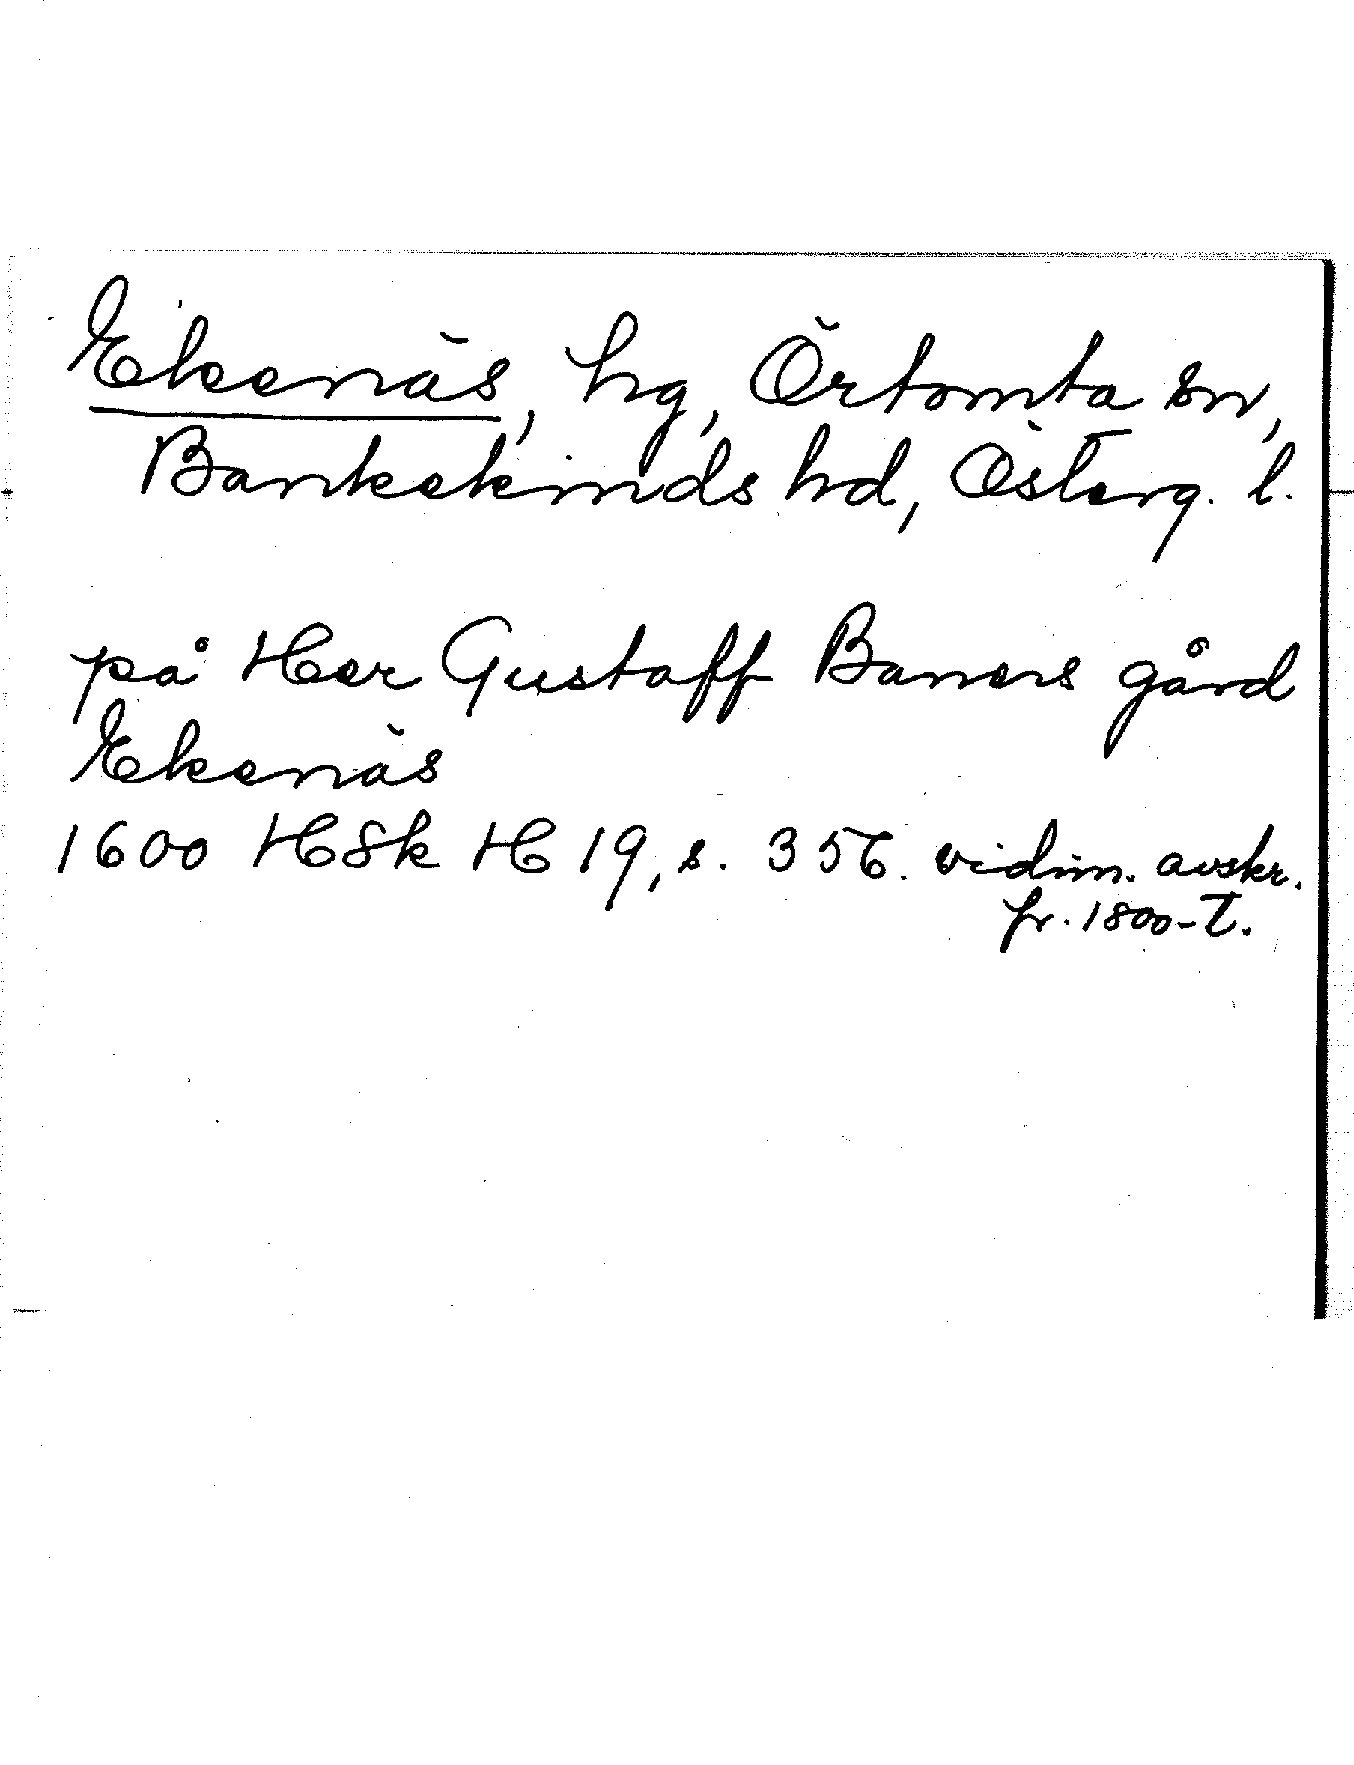 Ekenäs, hg, Örtomta sn,
Bankekinds hd, Österg. l.
på Her Gustaff Baners gård
Ekenäs
1600 HSk H 19, s. 356. vidim. avskr.
fr. 1800-t.